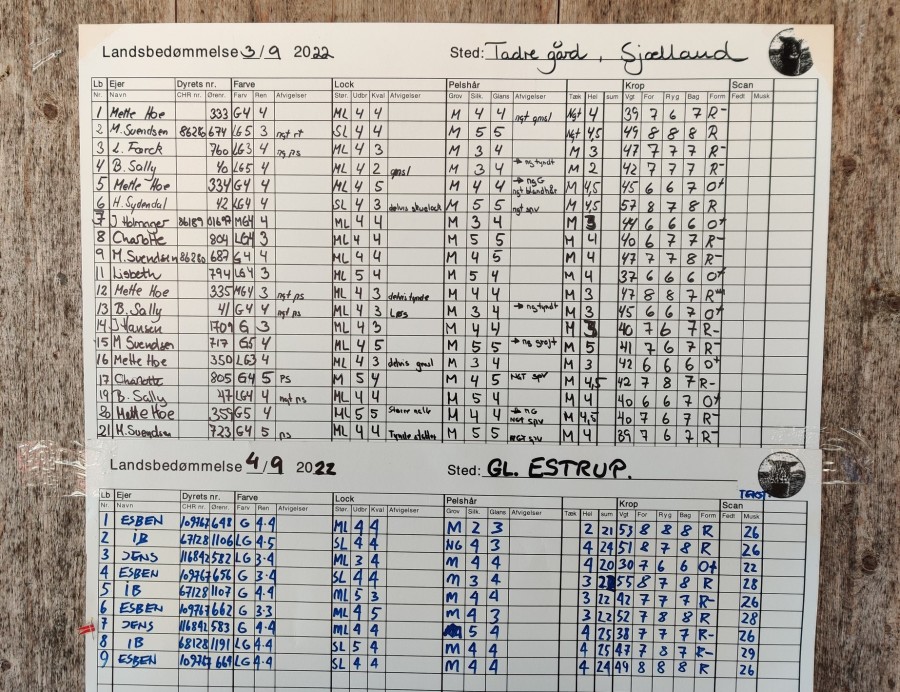 Landsbedømmelse 3/9 2022 Sted: Tadre gård, Sjælland
Lb Ejer Dyrets nr. Farve Lock Pelshår Krop Scan
Nr. Navn CHR nr. Ørenr. Farv Ren Afvigelser Stør. Udbr Kval Afvigelser Grov Silk. Glans Afvigelser Tæk Hel sum Vgt For Ryg Bag Form Fedt Musk
1 Mette Hoe 333 G4 4 ML 4 4 M 4 4 ngt gmsl Ngt 4 39 7 6 7 R-
2 M. Svendsen 86286 674 LG5 3 ngt rt SL 4 4 M 5 5 Ngt 4,5 49 8 8 8 R
3 L. Færck 760 LG3 4 ng ps ML 4 3 M 3 4 M 3 47 7 7 7 R-
4 B. Sally 40 LG5 4 ML 4 2 gmsl M 3 4 → ng tyndt M 2 42 7 7 7 R-
5 Mette Hoe 334 G4 4 ML 4 5 M 4 4 → ng G ngt blandhår M 4,5 45 6 6 7 O+
6 H. Sydendal 42 LG4 4 SL 4 3 M 5 5 ngt spv M 4,5 57 8 7 8 R
7 J Holmager 86189 MG4 4 ML 4 4 M 3 4 M 3 44 6 6 6 O+
8 Charlotte 804 LG4 3 ML 4 4 M 5 5 M 4 40 6 7 7 R-
9 M. Svendsen 86286 687 G4 4 ML 4 4 M 4 5 M 4 47 7 7 8 R-
11 Lisbeth 794 LG4 3 ML 5 4 M 5 4 M 4 37 6 6 6 O+
12 Mette Hoe 335 MG4 3 ngt ps ML 4 3 delvis tynde M 4 4 M 3 47 8 8 7 R-
13 B. Sally 41 G4 4 ngt ps ML 4 3 Løs M 3 4 → ng tyndt M 3 45 6 6 7 O+
14 J Hansen 1709 G 3 ML 4 3 M 4 4 M 3 40 7 6 7 R-
15 M Svendsen 717 G5 4 ML 4 5 M 5 5 M 5 41 7 6 7 R-
16 Mette Hoe 350 LG3 4 ML 4 3 delvis gmsl M 3 4 M 3 42 6 6 6 O+
17 Charlotte 805 G4 5 PS M 5 4 M 4 5 NGT spv M 4,5 42 7 8 7 R-
19 B. Sally 47 LG4 4 ngt ps ML 4 4 M 5 4 M 4 40 6 6 7 O+
20 Mette Hoe 359 G5 4 ML 5 5 M 4 4 → NG NGT spv M 4,5 40 7 6 7 R-
21 M. Svendsen 723 G4 5 ps ML 4 4 M 5 5 NGT spv M 4 39 7 6 7 R-
Landsbedømmelse 4/9 2022 Sted: GL. ESTRUP.
Lb Ejer Dyrets nr. Farve Lock Pelshår Krop Scan
Nr. Navn CHR nr. Ørenr. Farv Ren Afvigelser Stør. Udbr Kval Afvigelser Grov Silk. Glans Afvigelser Tæk Hel sum Vgt For Ryg Bag Form Fedt Musk
1 ESBEN 109767 648 G 4-4 ML 4 4 M 2 3 2 21 53 8 8 8 R 26
2 IB 67128 1106 LG 4-5 SL 4 4 NG 4 3 4 24 51 8 7 8 R 26
3 JENS 116842 582 LG 3-4 ML 3 4 M 4 4 4 20 30 7 6 6 O+ 22
4 ESBEN 109767 656 G 3-4 SL 4 4 M 3 4 3 55 8 7 8 R 28
5 IB 67128 1107 G 4-4 ML 5 3 M 4 4 3 22 42 7 7 7 R- 26
6 ESBEN 109767 662 G 3-3 ML 4 5 M 4 3 3 22 52 7 8 8 R 28
7 JENS 116842 583 G 4-4 ML 4 4 5 4 4 25 38 7 7 7 R- 26
8 IB 68128 1191 LG 4-4 SL 5 4 M 4 4 4 25 47 7 8 7 R- 29
9 ESBEN 109767 669 LG 4-4 SL 4 4 M 4 4 4 24 49 8 8 8 R 26